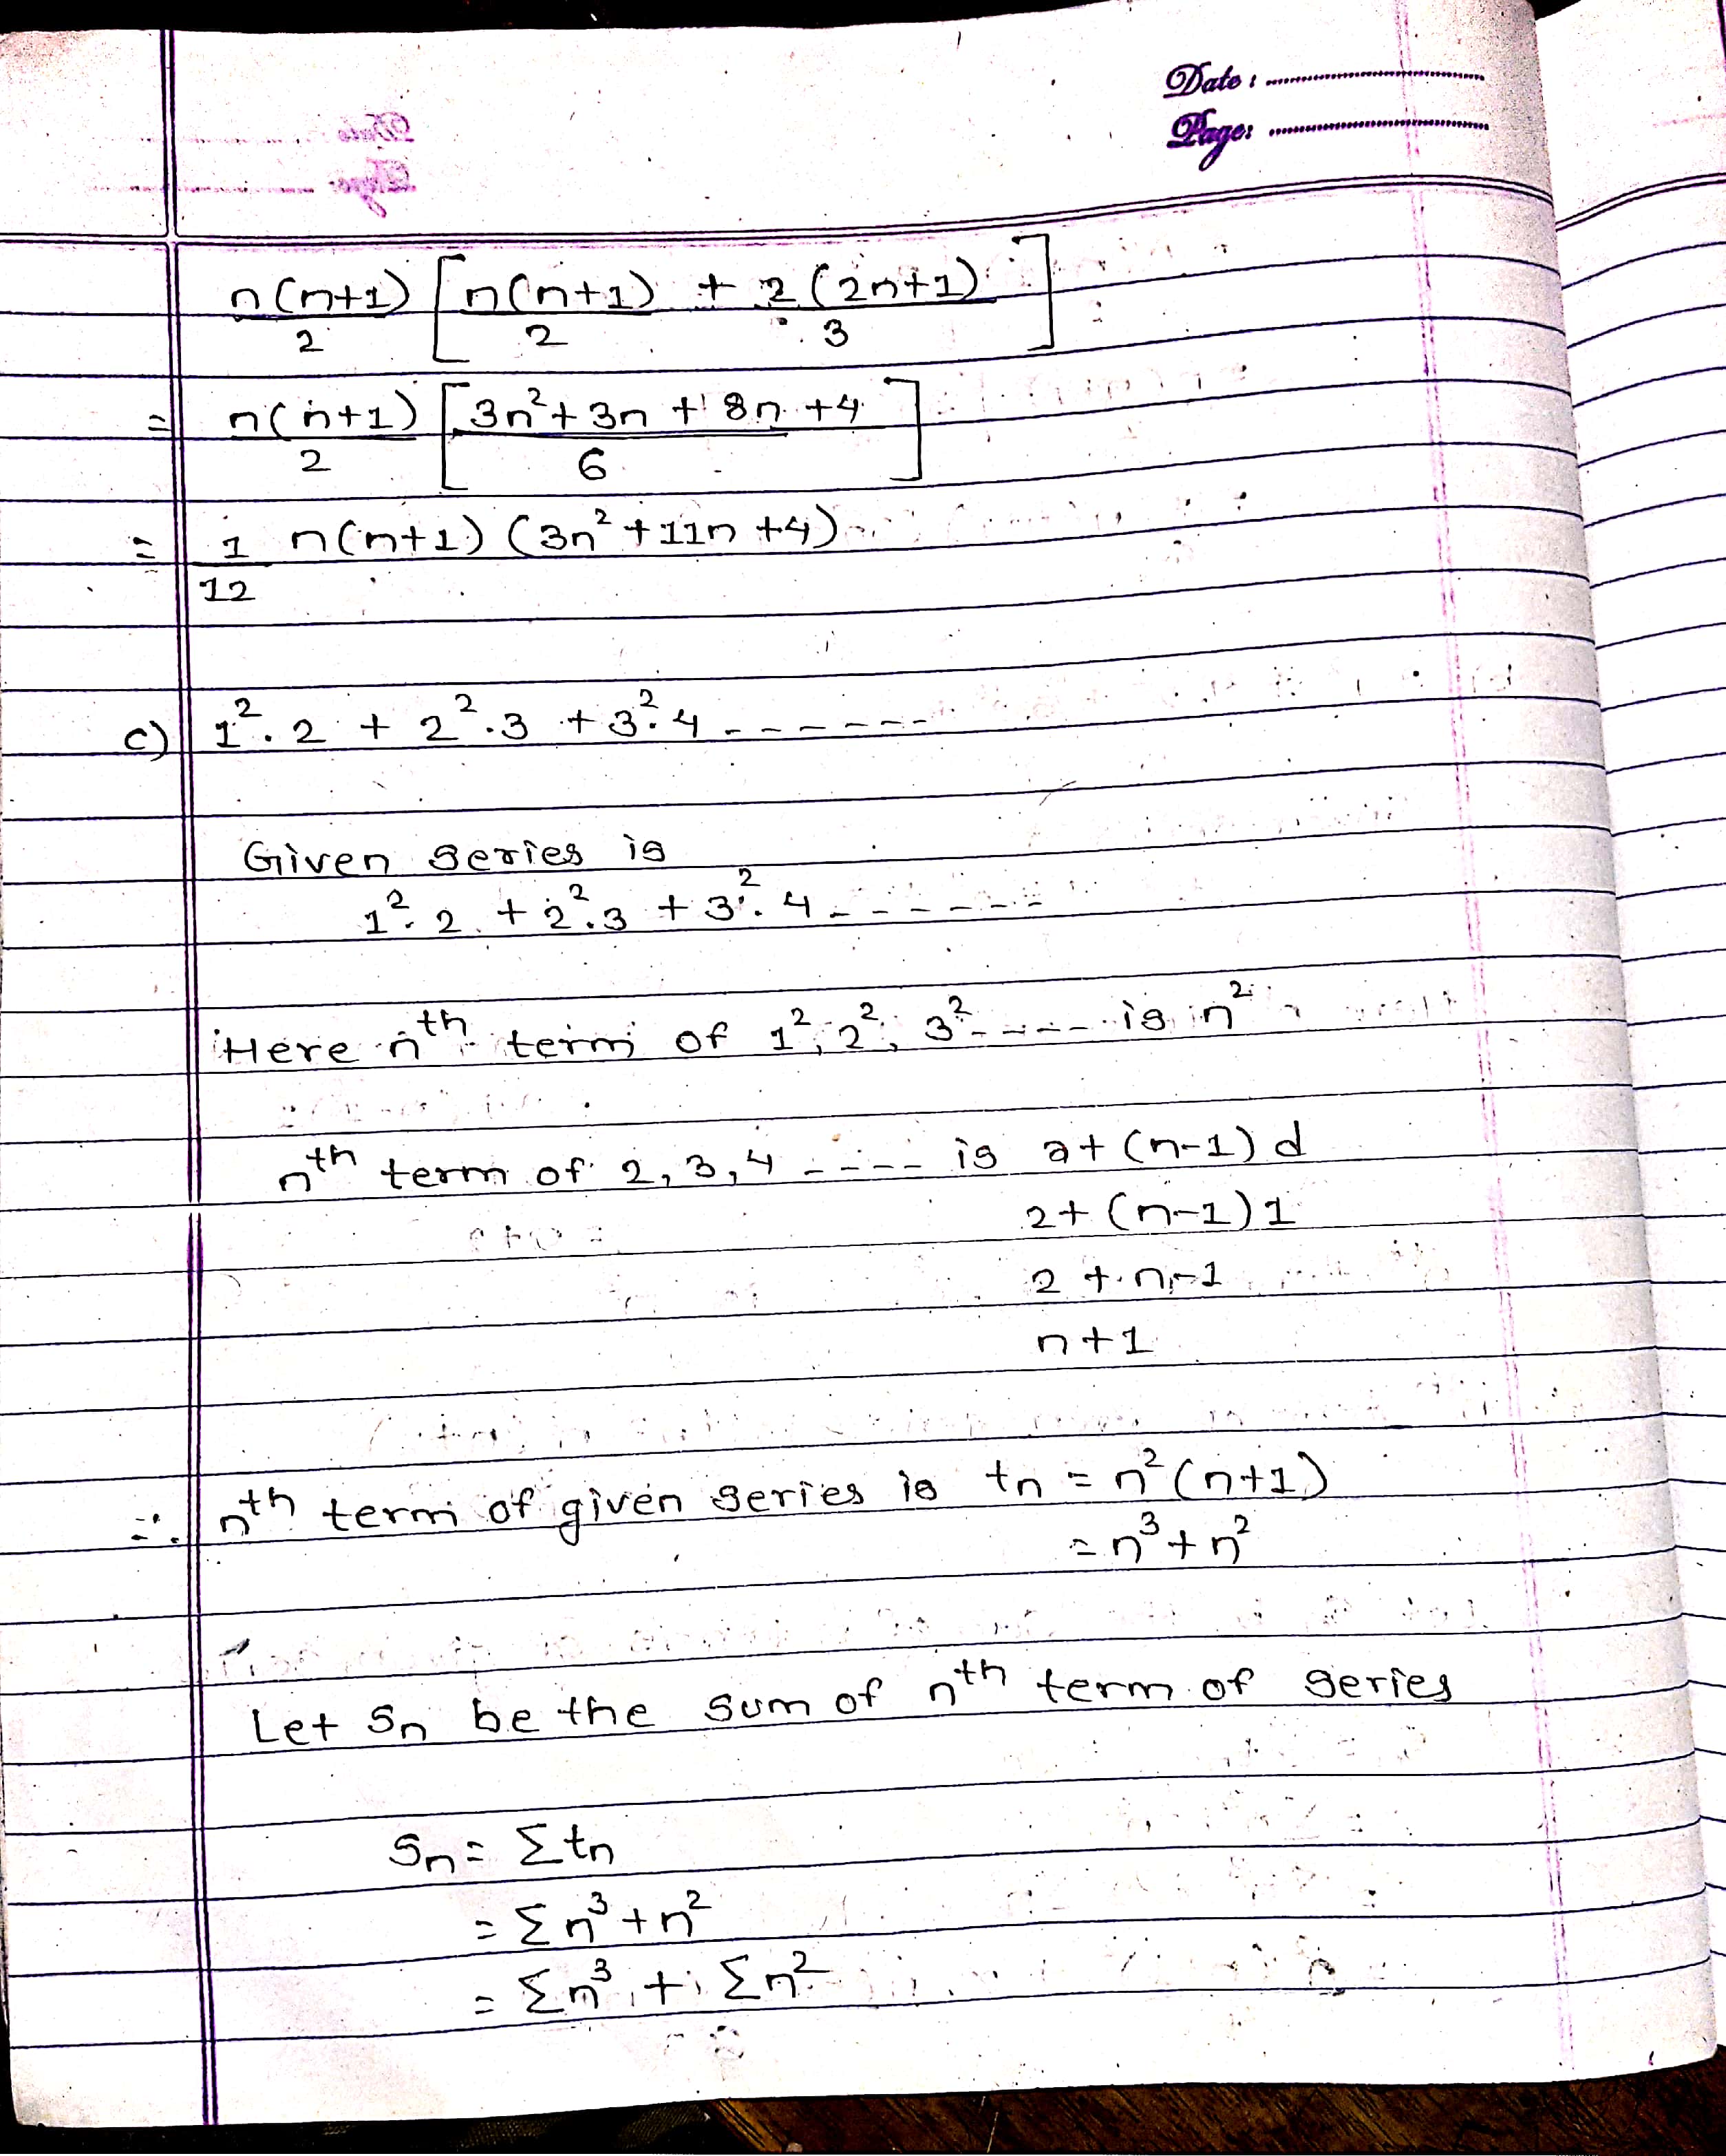 Date :
Page:
n(n+1)/2 [ n(n+1)/2 + 2(2n+1)/3 ]
= n(n+1)/2 [ 3n²+3n+8n+4 / 6 ]
= 1/12 n(n+1) (3n²+11n+4)
c) 1².2 + 2².3 + 3².4 ------
Given series is
1².2 + 2².3 + 3².4 ------
Here nth term of 1², 2², 3² ---- is n²
nth term of 2, 3, 4 ---- is a+(n-1)d
2+(n-1)1
2+n-1
n+1
∴ nth term of given series is tn = n²(n+1)
= n³+n²
Let Sn be the sum of nth term of series
Sn = Σtn
= Σn³+n²
= Σn³ + Σn²